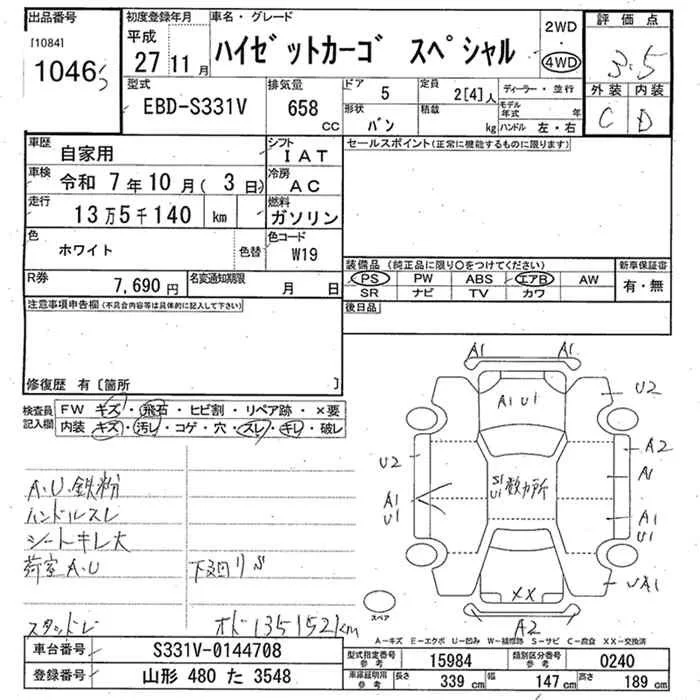 出品番号
[1084]
1046
初度登録年月
平成
27年11月
車名・グレード
ハイゼットカーゴ スペシャル
2WD
・
4WD
評価点
3.5
外装 内装
C D
型式
EBD-S331V
排気量
658
cc
ドア 5
定員 2[4]人
ディーラー・並行
形状 バン
積載 kg
モデル年式 年
ハンドル 左・右
車歴 自家用
シフト IAT
車検 令和 7年10月( 3日)
冷房 AC
走行 13万5千140 km
燃料 ガソリン
色 ホワイト 色替
色コード W19
R券 7,690円
名変通知期限 月 日
セールスポイント(正常に機能するものに限ります)
装備品 (純正品に限り○をつけてください)
PS PW ABS エアB AW
SR ナビ TV カワ
新車保証書
有・無
後日品
注意事項申告欄(不具合内容等は具体的に記入して下さい)
修復歴 有〔箇所 〕
検査員記入欄
FW キズ・飛石・ヒビ割・リペア跡・×要
内装 キズ・汚レ・コゲ・穴・スレ・キレ・破レ
A.U.鉄粉
ハンドルスレ
シートキレ大
荷室A.U
下回リS
スタッドレ
オド135152km
A1 A1
A1 U1
U2
U2
A2
A1
S1
U1
数カ所
A1
U1
A1
U1
XX
UA1
A2
スペア
A-キズ E-エクボ U-凹み W-補修跡 S-サビ C-腐食 XX-交換済
車台番号 S331V-0144708
登録番号 山形 480 た 3548
型式指定番号 参考 15984
類別区分番号 参考 0240
車庫証明用 参考
長さ 339 cm
幅 147 cm
高さ 189 cm